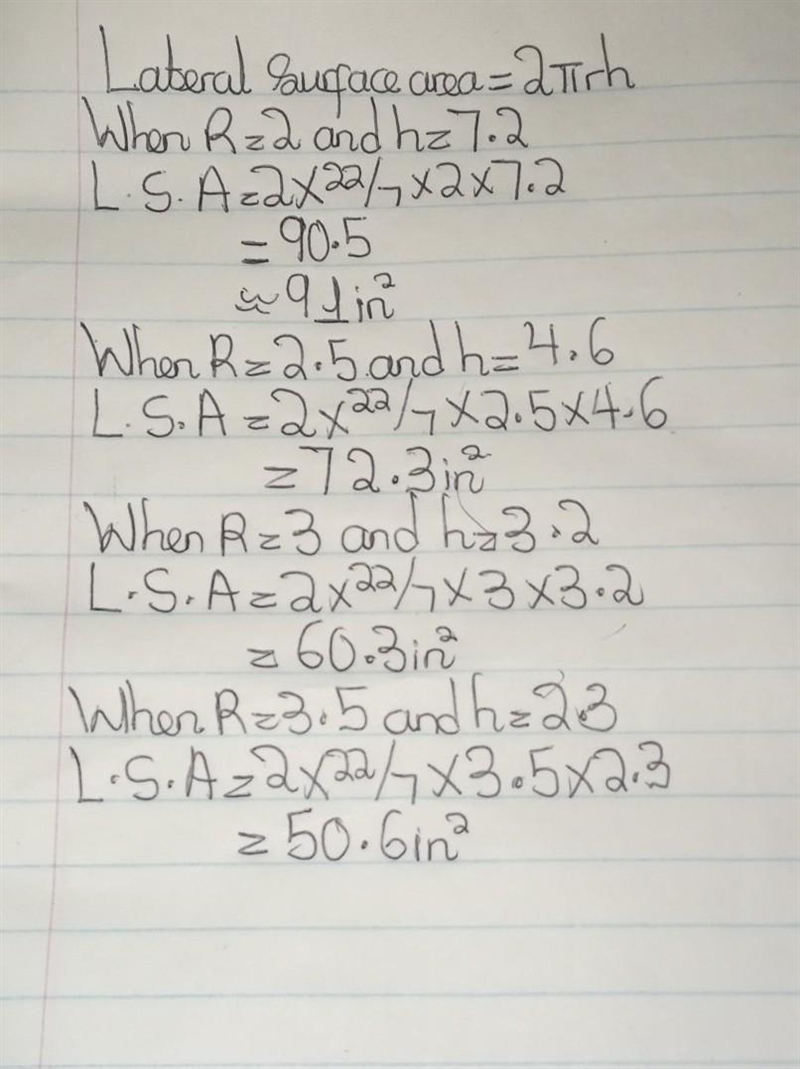 Lateral Surface area = 2πrh
When R = 2 and h = 7.2
L.S.A = 2 x 22/7 x 2 x 7.2
= 90.5
≈ 91in²
When R = 2.5 and h = 4.6
L.S.A = 2 x 22/7 x 2.5 x 4.6
= 72.3in²
When R = 3 and h = 3.2
L.S.A = 2 x 22/7 x 3 x 3.2
= 60.3in²
When R = 3.5 and h = 2.3
L.S.A = 2 x 22/7 x 3.5 x 2.3
= 50.6in²